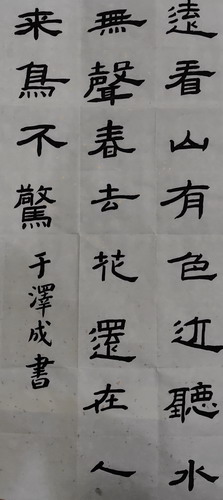 遠看山有色近聽水
無聲春去花還在人
来鳥不驚于澤成書